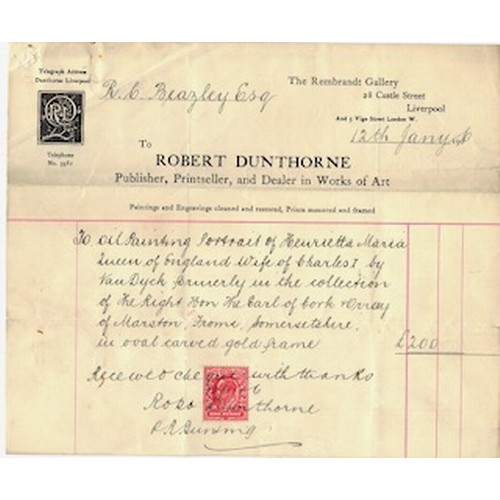 Telegraph Address
Dunthorne Liverpool
Telephone
R. C. Beazley Esq
The Rembrandt Gallery
28 Castle Street
Liverpool
And 5 Vigo Street London W.
12th Jany
To
ROBERT DUNTHORNE
Publisher, Printseller, and Dealer in Works of Art
Paintings and Engravings cleaned and restored, Prints mounted and framed
To Oil Painting Portrait of Henrietta Maria
Queen of England Wife of Charles I by
Van Dyck formerly in the collection
of The Right Hon The Earl of Cork & Orrery
of Marston, Frome, Somersetshire,
in oval carved gold frame £200
Received cheque with thanks
Robt Dunthorne